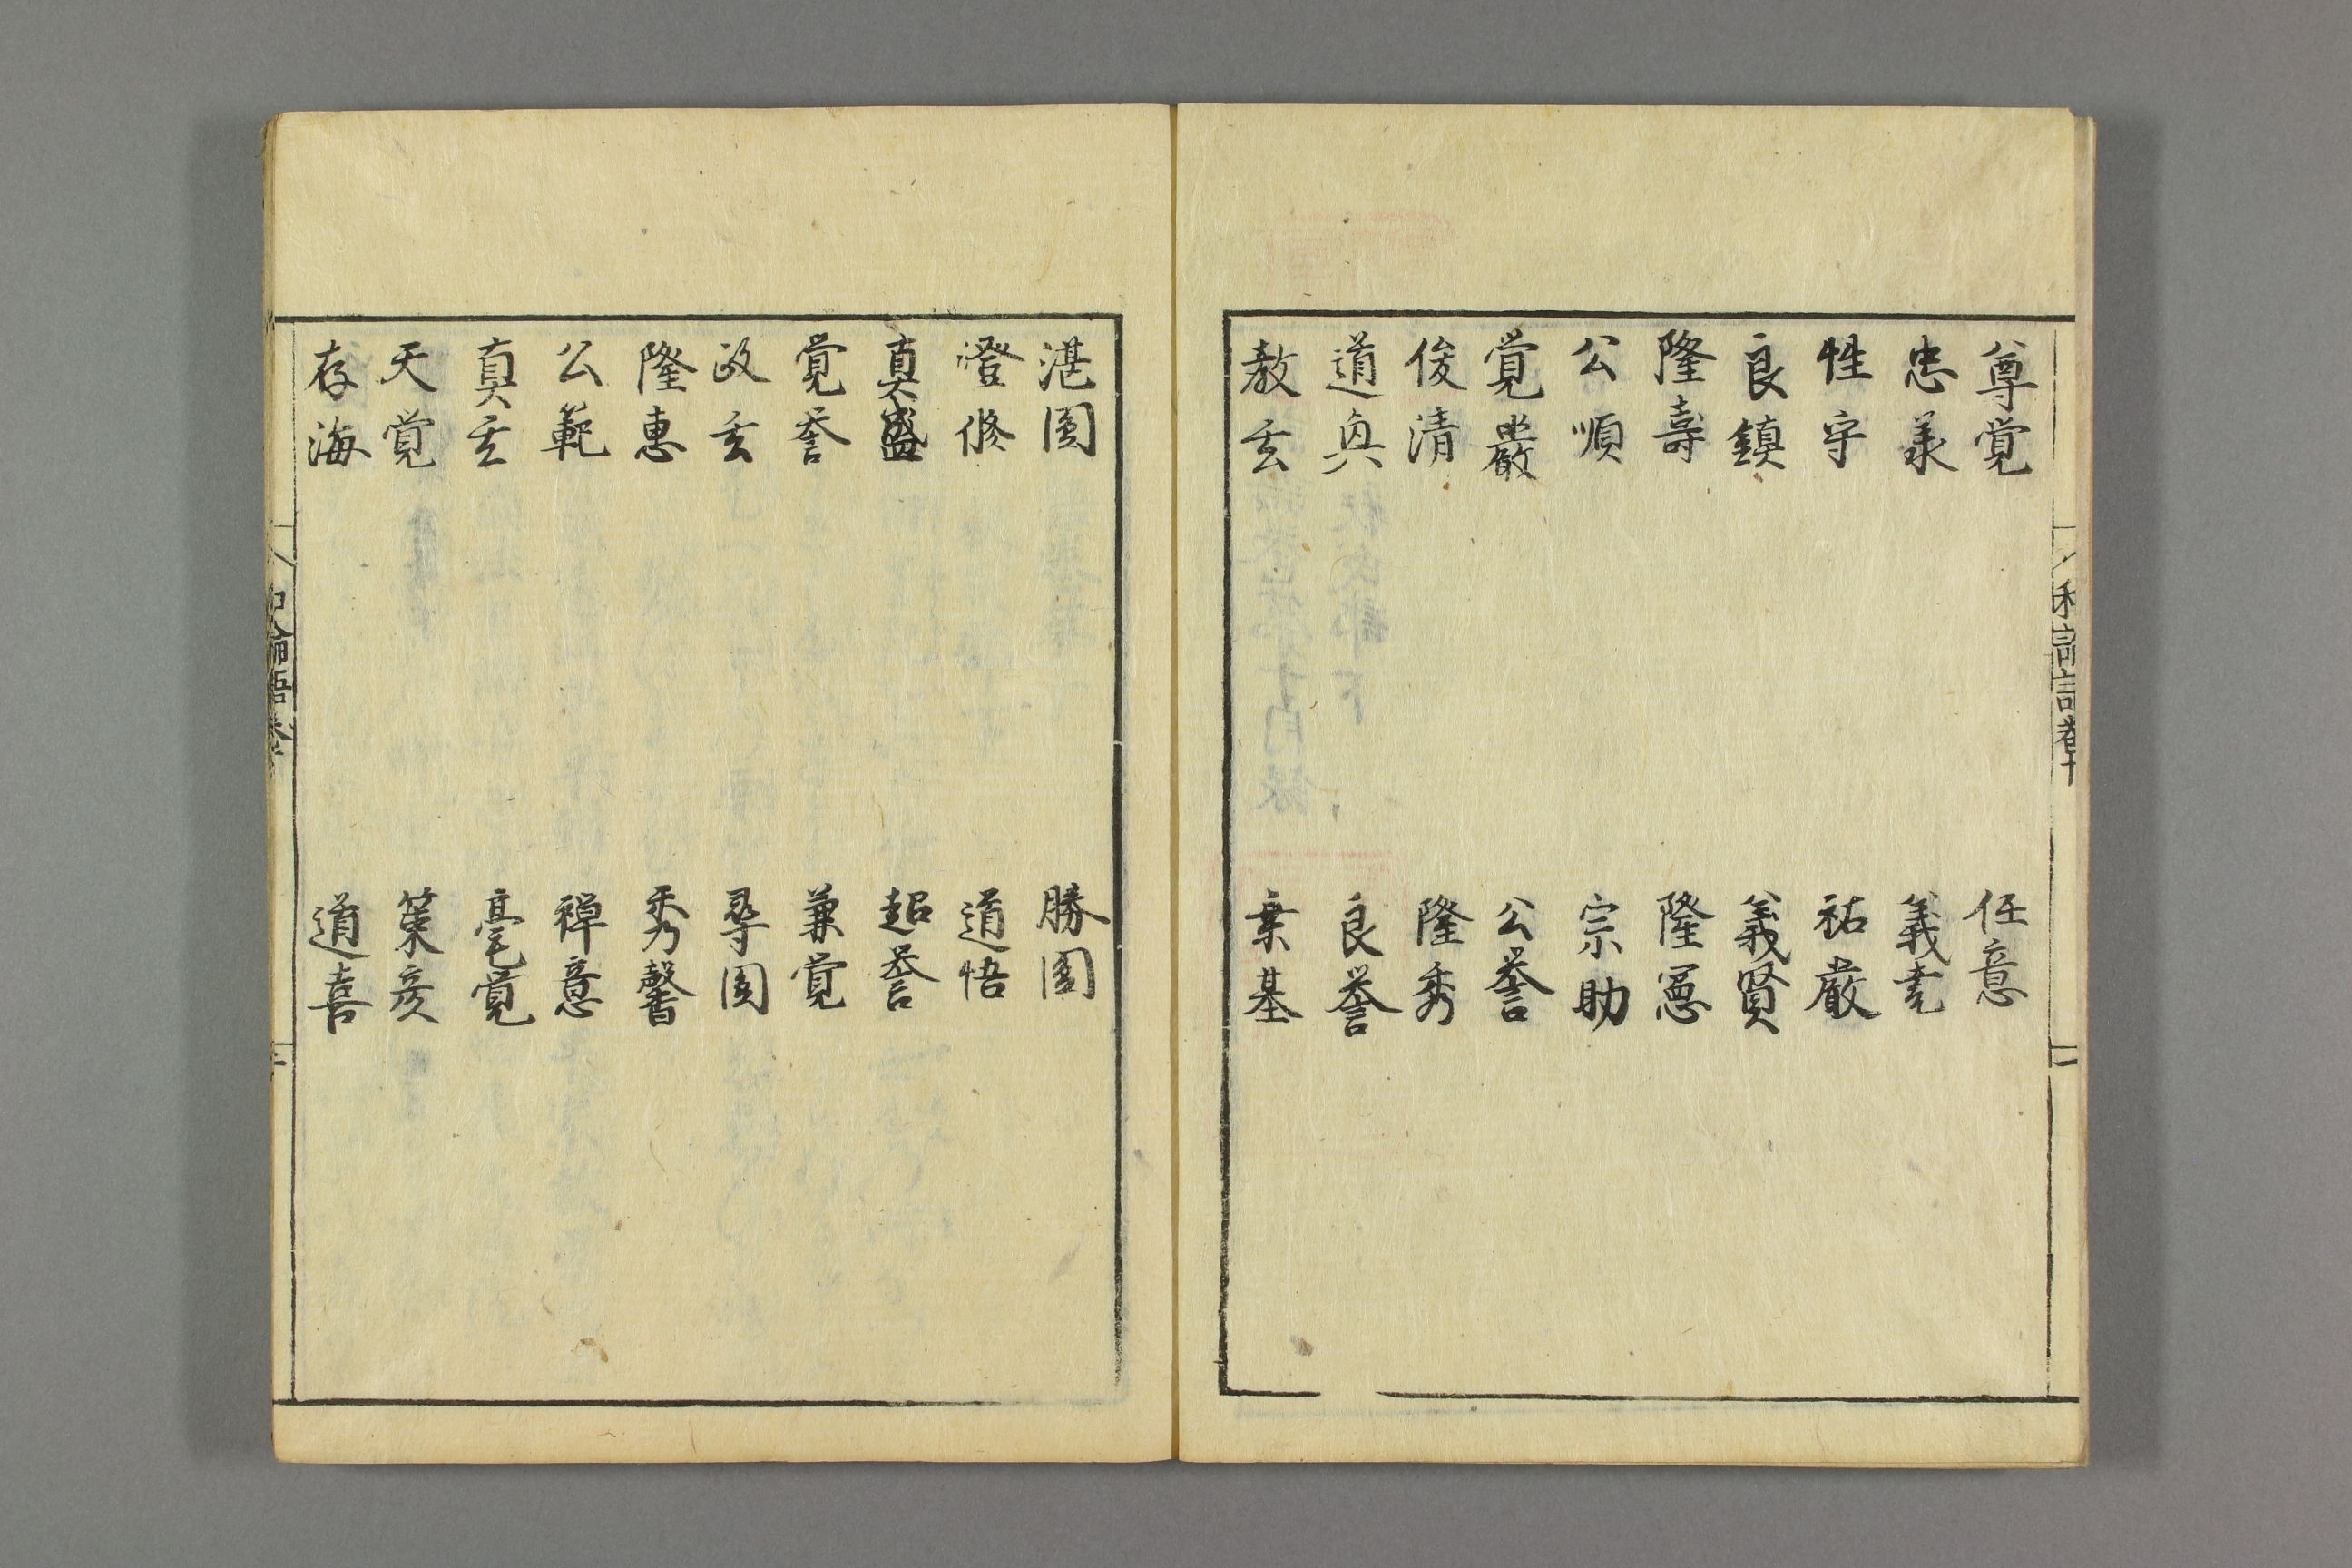 尊覚　任意
忠義　義尭
性守　祐厳
良鎮　義賢
隆壽　隆寛
公順　宗助
覚巌　公誉
俊清　隆秀
道真　良誉
教玄　業基
和論語巻十
湛圓　勝圓
澄修　道悟
真盛　超誉
覚誉　兼覚
政玄　尋圓
隆恵　秀馨
公範　禅意
真玄　毫覚
天覚　策彦
存海　道喜
和論語巻